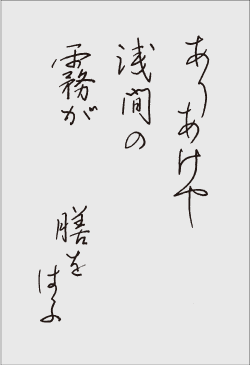 ありあけや
浅間の
霧が
膳を
はふ